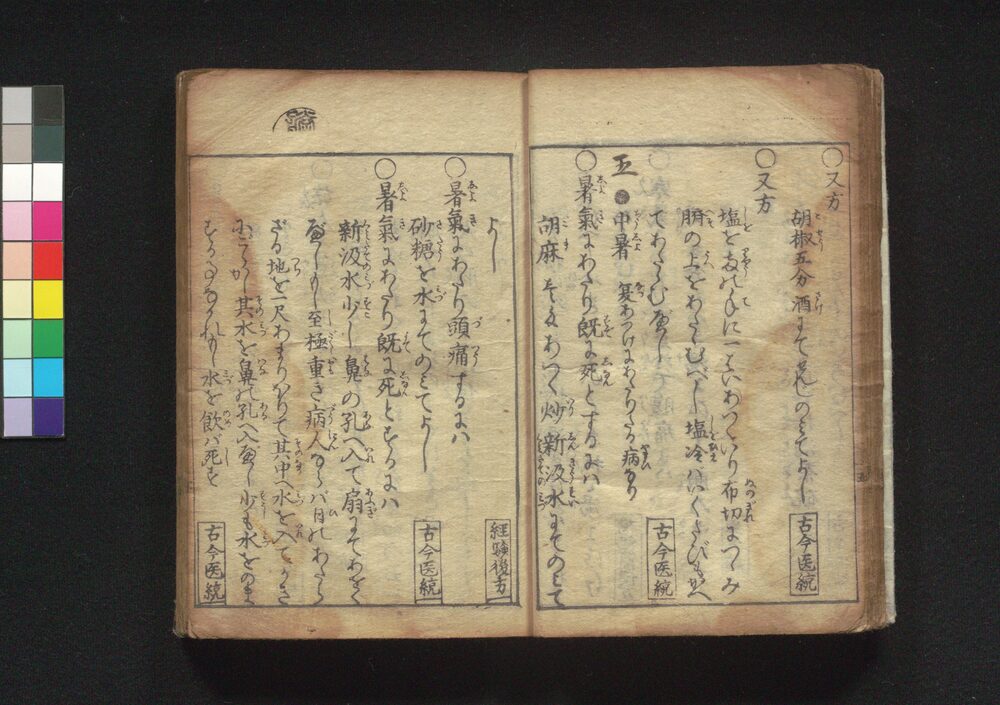 ○又方
胡椒五分酒にてせんじのみてよし
古今医統
○又方
塩を茶
布切につゝみ
臍の上をあたゝむべし塩冷
てあたゝむべし
古今医統
五
●中暑 夏
病なり
○暑氣にあたり既に死とするには
胡麻
あつく炒新汲水にてのみて
よし
経験後方
○暑氣にあたり頭痛するには
砂糖を水にてのみてよし
古今医統
○暑氣にあたり既に死とするには
新汲水少し鼻の孔へ入て扇にてあをぐ
べし
至極重き病人ならバ日のあたら
ざる地を一尺あまりほりて其中へ水を入てかき
其水を鼻の孔へ入べし少も水をのま
水を飲バ死す
古今医統